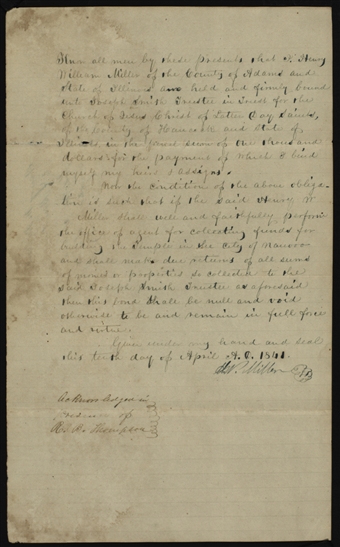 Know all men by these presents that I Henry
William Miller of the County of Adams and
State of Illinois am held and firmly bound
unto Joseph Smith Trustee in Trust for the
Church of Jesus Christ of Latter Day Saints,
of the County of Hancock and State of
Illinois, in the penal sum of one thousand
dollars for the payment of which I bind
myself my heirs & assigns.
Now the condition of the above obliga-
tion is such that if the said Henry W
Miller shall well and faithfully perform
the office of agent for collecting funds for
building the Temple in the city of Nauvoo
and shall make due returns of all sums
of monies or properties so collected to the
said Joseph Smith Trustee as aforesaid
then this bond shall be null and void
otherwise to be and remain in full force
and virtue.
Given under my hand and seal
this tenth day of April A.D. 1841.
H W Miller
Acknowledged in
presence of
R. B. Thompson